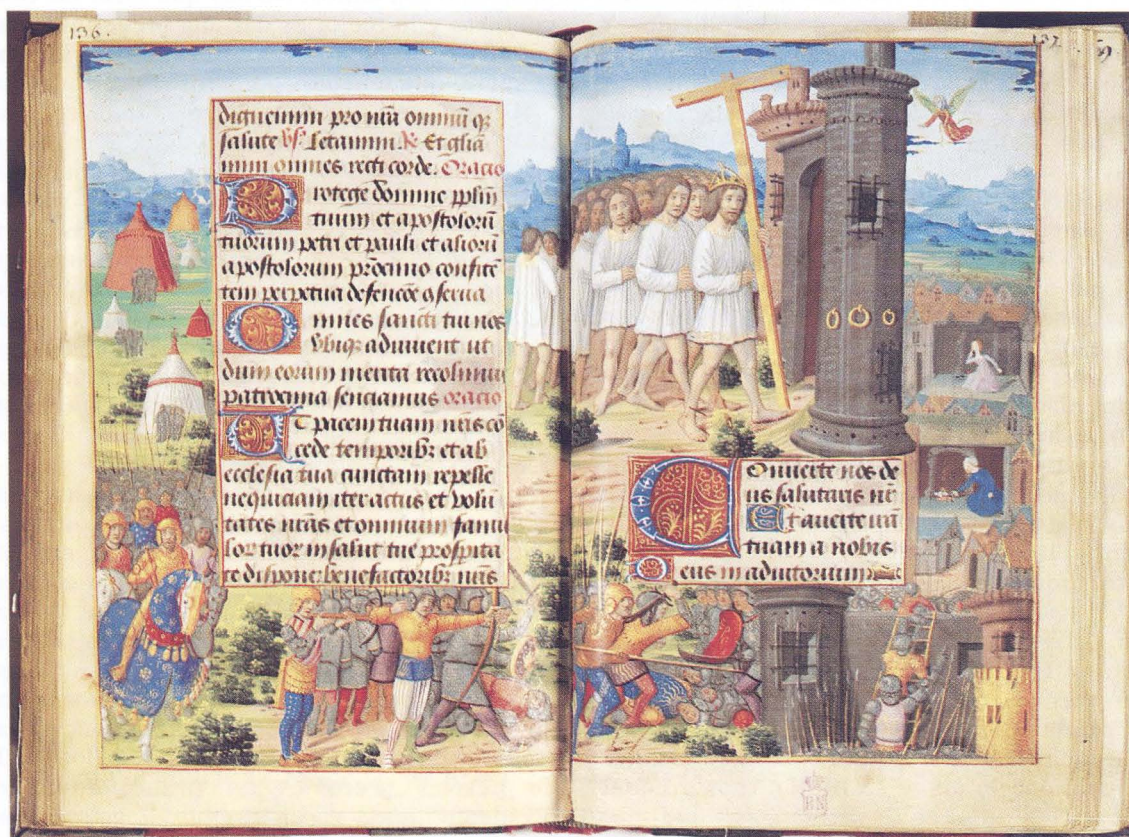 136.
digneminī pro nr̄a omniū qȝ
salute vs. Letamini. R. Et glia
mini omnes recti corde. Oracio
Protege domine pplm̄
tuum et apostolorū
tuorum petri et pauli et aliorū
apostolorum pr̄ocinio confitē
tem perpetua defencōe ꝯserua
Omnes sancti tui nos
vbiqȝ adiuuent ut
dum eorum merita recolimus
patrocinia senciamus oracio
Et pacem tuam nr̄is cō
cede temporibȝ et ab
ecclesia tua cunctam repelle
nequiciam iter actus et volū
tates nr̄as et omnium famu
lor tuor in salut tue prospita
te dispone: benefactoribȝ nr̄is
137.
Conuerte nos de
us salutaris nr̄
Et auerte irā
tuam a nobis
Deus in adiutorium
BN